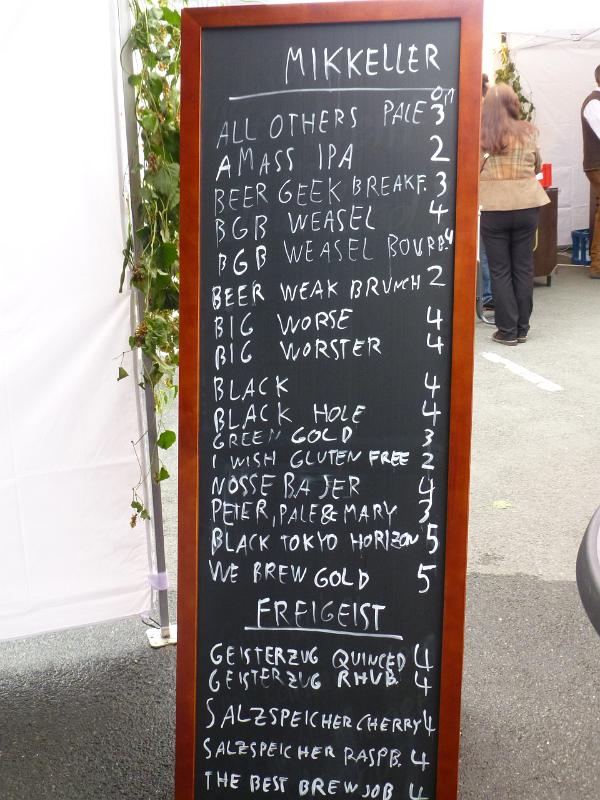 MIKKELLER
ALL OTHERS PALE 3
AMASS IPA 2
BEER GEEK BREAKF. 3
BGB WEASEL 4
BGB WEASEL BOURB. 4
BEER WEAK BRUNCH 2
BIG WORSE 4
BIG WORSTER 4
BLACK 4
BLACK HOLE 4
GREEN GOLD 3
I WISH GLUTEN FREE 2
NOSSE BAJER 4
PETER, PALE & MARY 3
BLACK TOKYO HORIZON 5
WE BREW GOLD 5
FREIGEIST
GEISTERZUG QUINCED 4
GEISTERZUG RHUB. 4
SALZSPEICHER CHERRY 4
SALZSPEICHER RASPB. 4
THE BEST BREW JOB 4